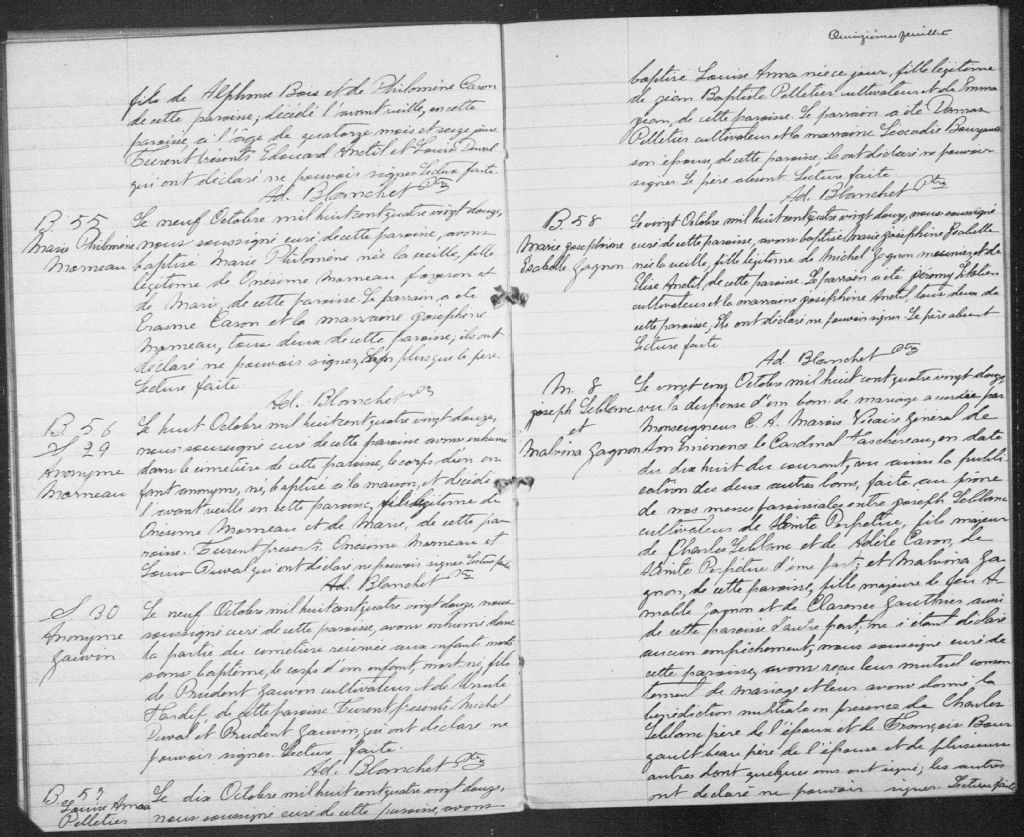 fils de Alphonse Bois et de Philomène Caron
de cette paroisse, décédé l'avant veille, en cette
paroisse, à l'âge de quatorze mois et seize jours
Furent présents Edouard Anctil et Louis Duval
qui ont déclaré ne pouvoir signer. Lecture faite.
Ad. Blanchet Ptre
B. 55
Marie Philomène
Morneau
Le neuf Octobre mil huit cent quatre vingt douze,
nous soussigné curé de cette paroisse, avons
baptisé Marie Philomène née la veille, fille
légitime de Onesime Morneau forgeron et
de Marie, de cette paroisse. Le parrain a été
Erasme Caron et la marraine Josephine
Morneau, tous deux de cette paroisse; ils ont
déclaré ne pouvoir signer, plus que le père.
Lecture faite
Ad. Blanchet Ptre
B. 56
S 29
Anonyme
Morneau
Le huit Octobre mil huit cent quatre vingt douze,
nous soussigné curé de cette paroisse avons inhumé
dans le cimetière de cette paroisse, le corps d'un en
fant anonyme, né, baptisé à la maison, et décédé
l'avant veille en cette paroisse, fils légitime de
Onésime Morneau et de Marie, de cette pa-
roisse. Furent presents Onésime Morneau et
Louis Duval qui ont déclaré ne pouvoir signer. Lecture faite
Ad. Blanchet Ptre
S 30
Anonyme
Gauvin
Le neuf Octobre mil huit cent quatre vingt douze, nous
soussigné curé de cette paroisse, avons inhumé dans
la partie du cimetière reservée aux enfants morts
sans baptême, le corps d'un enfant, mort né, fils
de Prudent Gauvin cultivateur et de Ursule
Tardif, de cette paroisse Furent presents Michel
Duval et Prudent Gauvin, qui ont déclaré ne
pouvoir signer. Lecture faite.
Ad. Blanchet Ptre
B. 57
Louise Anna
Pelletier
Le dix Octobre mil huit cent quatre vingt douze,
nous soussigné curé de cette paroisse, avons
Quinzième feuillet
baptisé Louise Anna née ce jour, fille légitime
de Jean Baptiste Pelletier cultivateur et de Emma
Jean, de cette paroisse. Le parrain a été Damas
Pelletier cultivateur et la marraine Leocadie Bourgault
son épouse, de cette paroisse, ils ont déclaré ne pouvoir
signer. Le père absent. Lecture faite.
Ad. Blanchet Ptre
B. 58
Marie Josephine
Exabelle Gagnon
Le vingt Octobre mil huit cent quatre vingt douze, nous soussigné
curé de cette paroisse, avons baptisé Marie Josephine Exabelle
née la veille, fille légitime de Michel Gagnon menuisier, et de
Elise Anctil, de cette paroisse. Le parrain a été Jeremy
cultivateur et la marraine Josephine Anctil, tous deux de
cette paroisse, Ils ont déclaré ne pouvoir signer. Le père absent
Lecture faite
Ad. Blanchet Ptre
M. 8
Joseph Leblanc
et
Malvina Gagnon
Le vingt cinq Octobre mil huit cent quatre vingt douze,
vu la dispense d'un ban de mariage accordée par
Monseigneur C. A. Marois Vicaire Général de
Son Eminence le Cardinal Taschereau, en date
du dix huit du courant, vu aussi la publi
cation des deux autres bans, faite au prone
de nos messes paroissiales entre Joseph Leblanc
cultivateur de Sainte Perpétue, fils majeur
de Charles Leblanc et de Adèle Caron, de
Sainte Perpétue d'une part; et Malvina Ga
gnon, de cette paroisse, fille majeure de feu A-
mable Gagnon et de Clarence Gauthier aussi
de cette paroisse d'autre part; ne s'étant déclaré
aucun empêchement, nous soussigné curé de
cette paroisse, avons reçu leur mutuel consen
tement de mariage et leur avons donné la
bénédiction nuptiale en presence de Charles
Leblanc père de l'époux et de François Bour
gault beau père de l'épouse et de plusieurs
autres dont quelques uns ont signé; les autres
ont déclaré ne pouvoir signer. Lecture faite